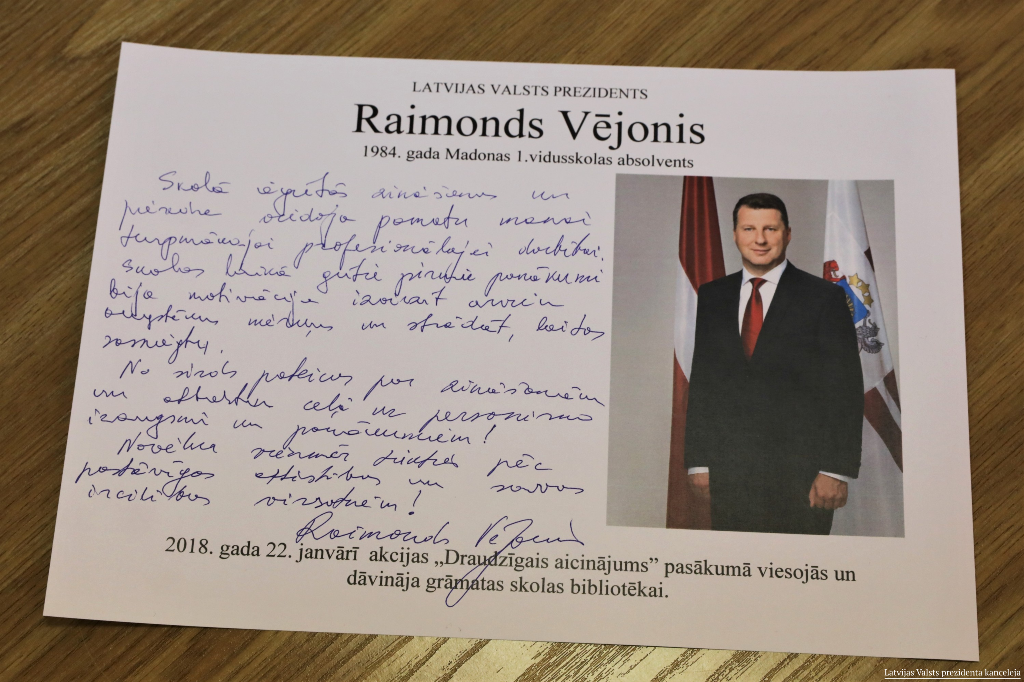 LATVIJAS VALSTS PREZIDENTS
Raimonds Vējonis
1984. gada Madonas 1.vidusskolas absolvents
Skolā iegūtās zināšanas un
pieredze veidoja pamatu manai
turpmākajai profesionālajai darbībai.
Skolas laikā gūtie pirmie panākumi
bija motivācija izvirzīt arvien
augstākus mērķus un strādāt, lai tos
sasniegtu.
No sirds pateicos par zināšanām
un atbalstu ceļā uz personisko
izaugsmi un panākumiem!
Novēlu vienmēr tiekties pēc
pastāvīgas attīstības un savas
izcilības virsotnēm!
Raimonds Vējonis
2018. gada 22. janvārī akcijas „Draudzīgais aicinājums” pasākumā viesojās un
dāvināja grāmatas skolas bibliotēkai.
Latvijas Valsts prezidenta kanceleja